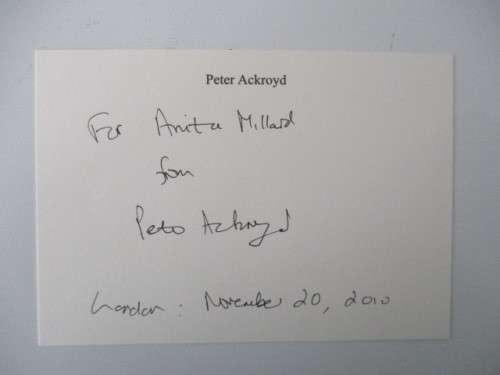 Peter Ackroyd
For Anita Millard
from
Peter Ackroyd
London : November 20, 2010